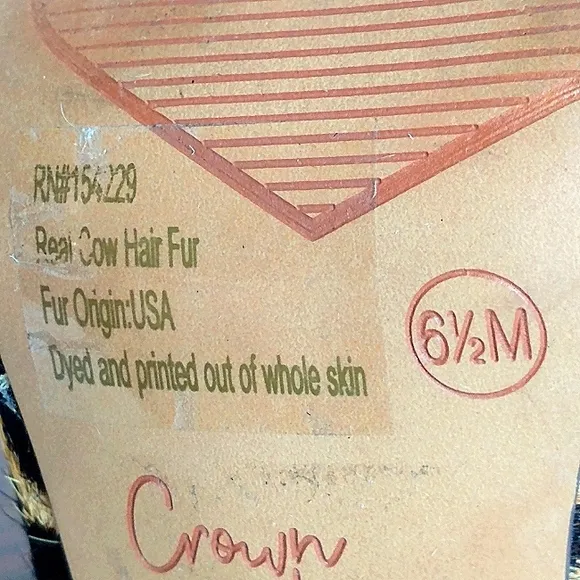 RN#154229
Real Cow Hair Fur
Fur Origin:USA
Dyed and printed out of whole skin
6½M
Crown